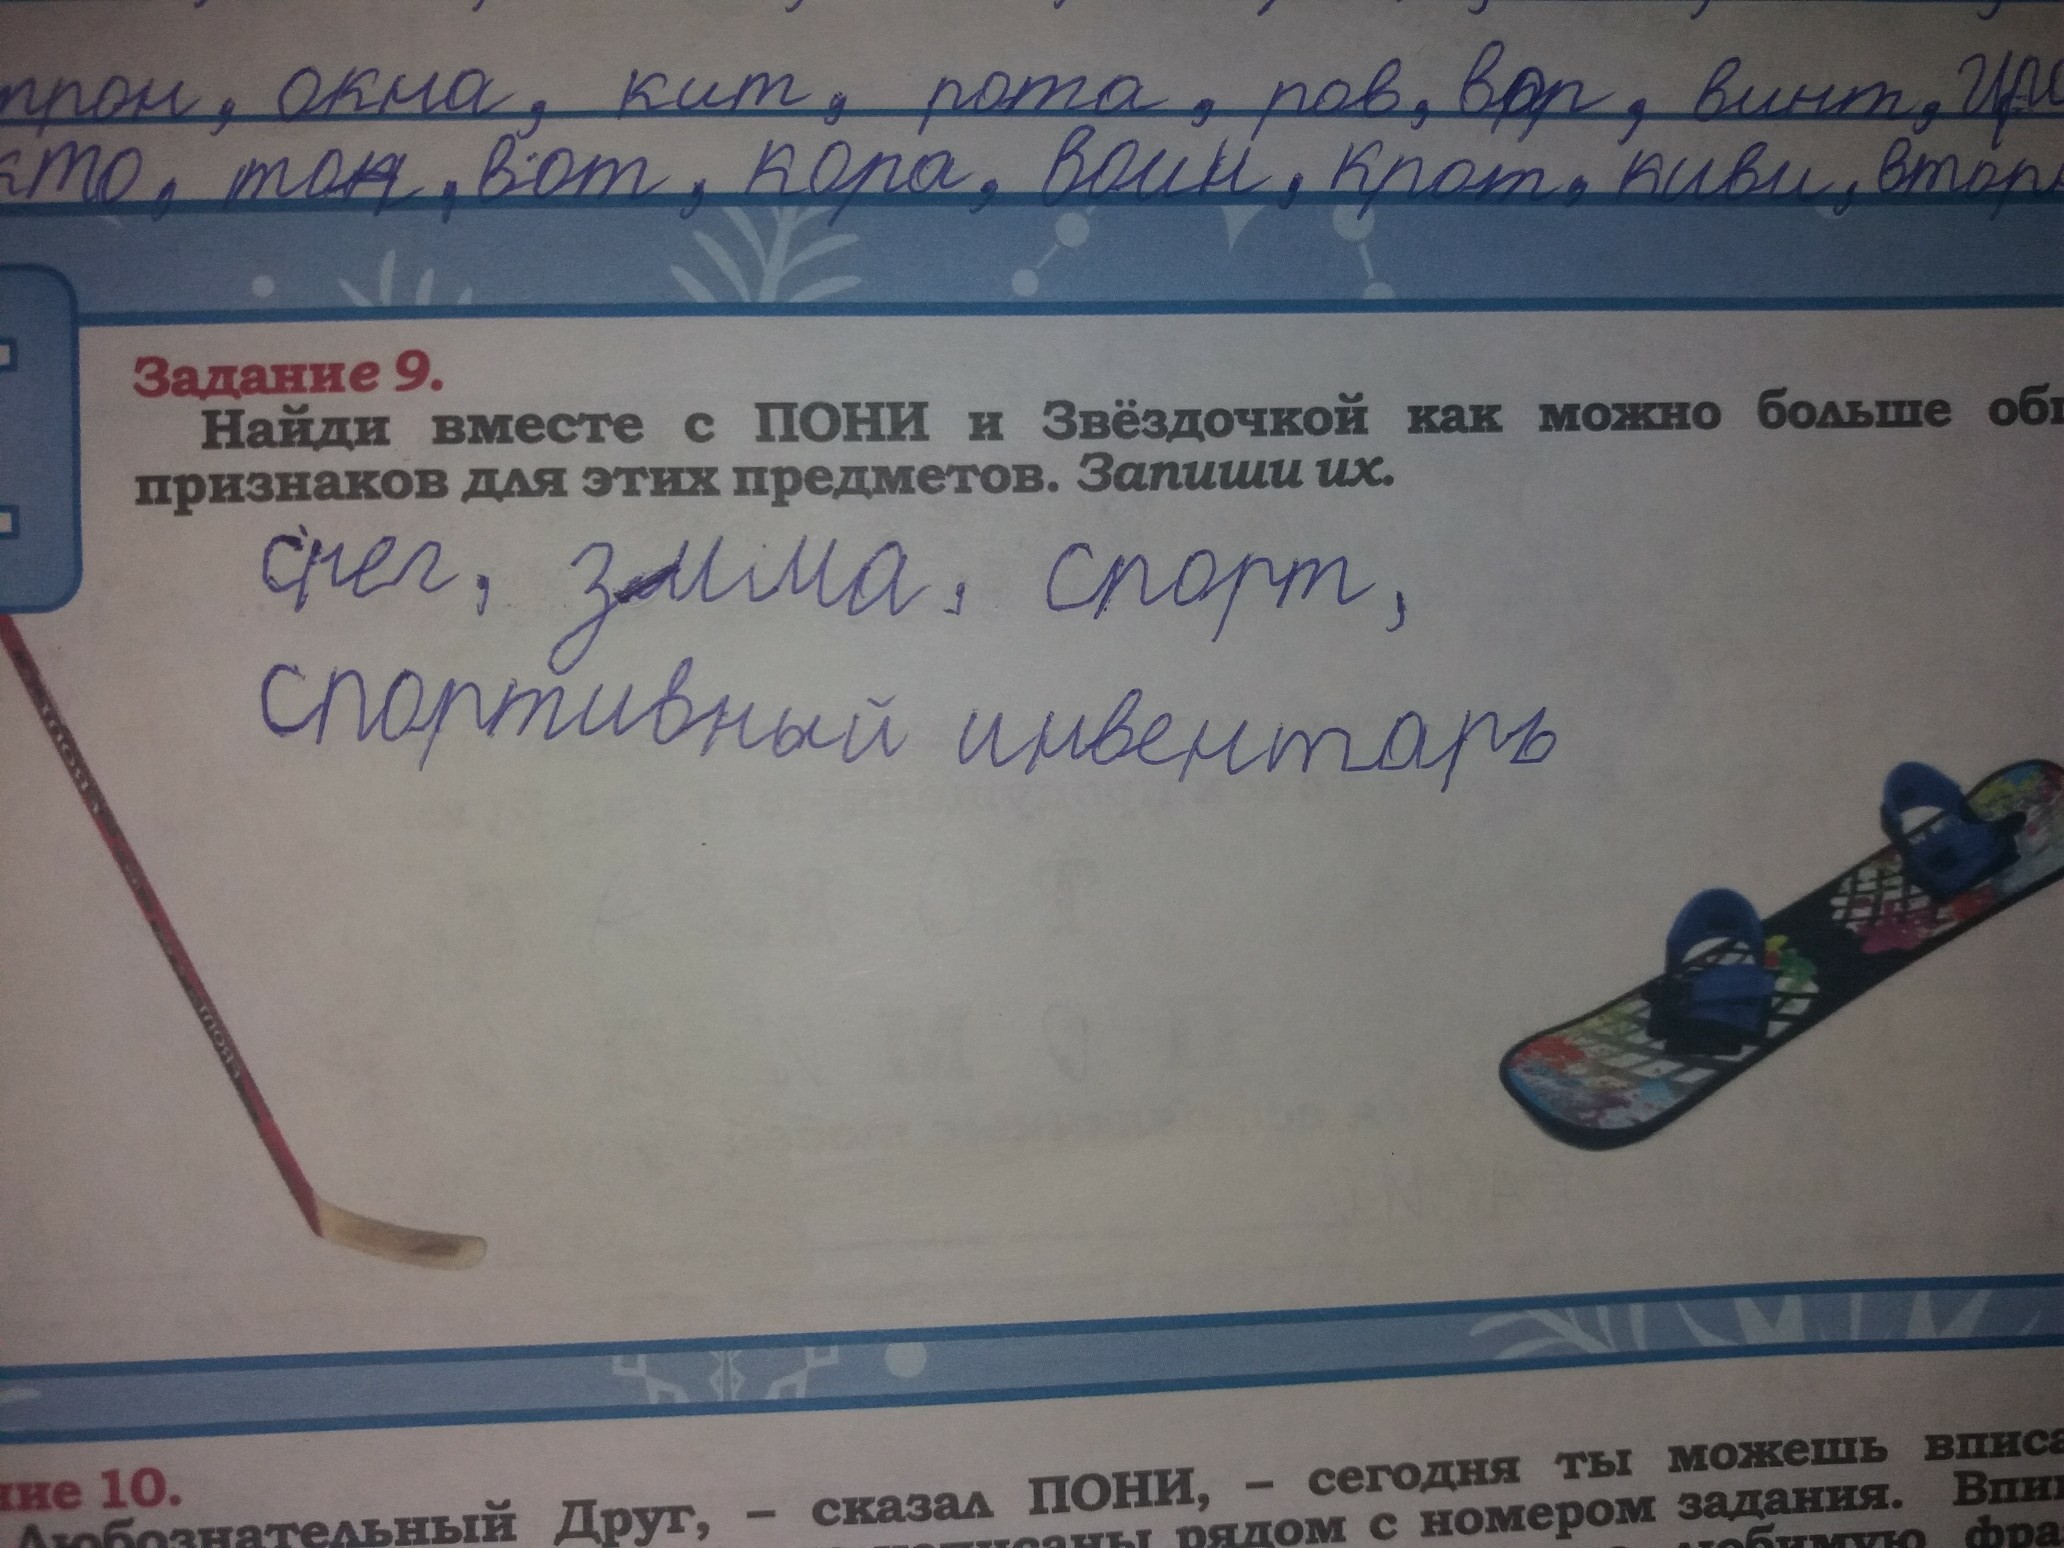 окна, кит, рота, ров, вор, винт,
кто, тон, вот, кора, воин, крот, киви,
Задание 9.
Найди вместе с ПОНИ и Звёздочкой как можно больше
признаков для этих предметов. Запиши их.
снег, зима, спорт,
спортивный инвентарь
10.
Любознательный Друг, – сказал ПОНИ, – сегодня ты можешь
рядом с номером задания.